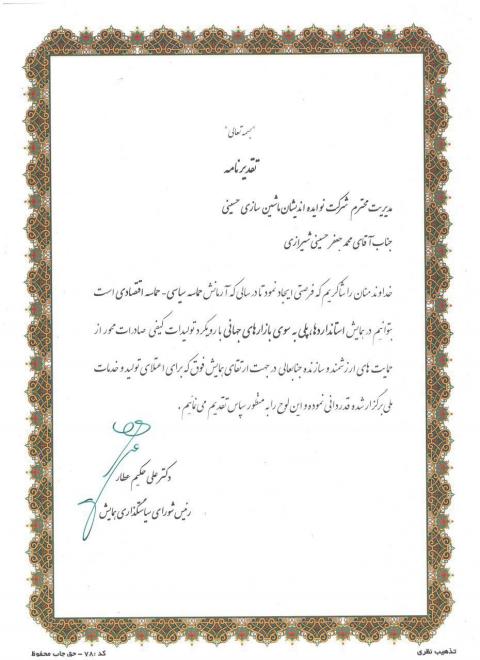 "بسمه تعالی"
تقدیرنامه
مدیریت محترم شرکت نوایده اندیشان ماشین سازی حسینی
جناب آقای محمد جعفر حسینی شیرازی
خداوند منان را شاکریم که فرصتی ایجاد نمود تا در سالی که آرمانش حماسه سیاسی - حماسه اقتصادی است
بتوانیم در همایش استانداردها، پلی به سوی بازارهای جهانی با رویکرد تولیدات کیفی صادرات محور از
حمایت های ارزشمند و سازنده جنابعالی در جهت ارتقای همایش فوق که برای اعتلای تولید و خدمات
ملی برگزار شده قدردانی نموده و این لوح را به منظور سپاس تقدیم می نمائیم .
دکتر علی حکیم عطار
رئیس شورای سیاستگذاری همایش
تذهیب نظری
کد :۷۸ - حق چاپ محفوظ